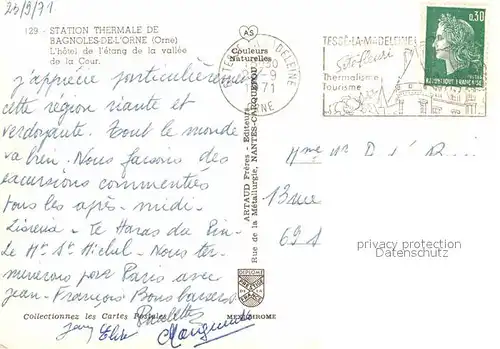 23/9/71
129. - STATION THERMALE DE
BAGNOLES-DE-L'ORNE (Orne)
L'hôtel de l'étang de la vallée
de la Cour.
j'apprécie particulièrement
cette région riante et
verdoyante. Tout le monde
va bien. Nous faisons des
excursions commentées
tous les après-midi
Lisieux - le Haras du Pin -
Le Mt St Michel - Nous ter-
minerons par Paris avec
Jean-François Bons baisers
Paulette
Elise
Collectionnez les Cartes Postales
AS
Couleurs
Naturelles
ARTAUD Frères - Editeurs
Rue de la Métallurgie, NANTES-CARQUEFOU
DIPLOME
PRESTIGE
DE LA
FRANCE
MEXICHROME
1971
TESSÉ-LA-MADELEINE
Site fleuri
Thermalisme
Tourisme
0,30
REPUBLIQUE FRANÇAISE
Mme
13 rue
protection copyright
Datenschutz